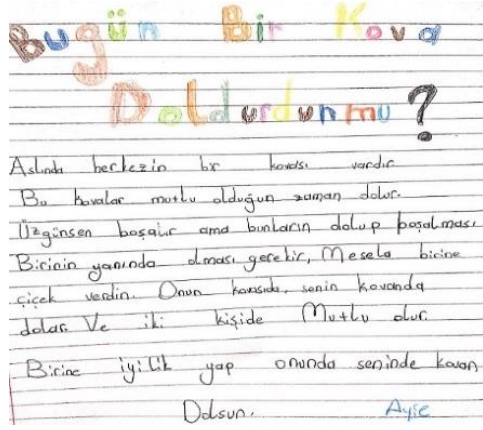 Bugün Bir Kova
Doldurdunmu?
Aslında herkezin bir kovası vardır
Bu kovalar mutlu olduğun zaman dolur.
Üzgünsen boşalır ama bunların dolup boşalması
Birinin yanında olması gerekir, Mesela birine
çiçek verdin. Onun kovasıda, senin kovanda
dolar Ve iki kişide Mutlu olur
Birine iyilik yap onunda seninde kovan
Dolsun. Ayşe